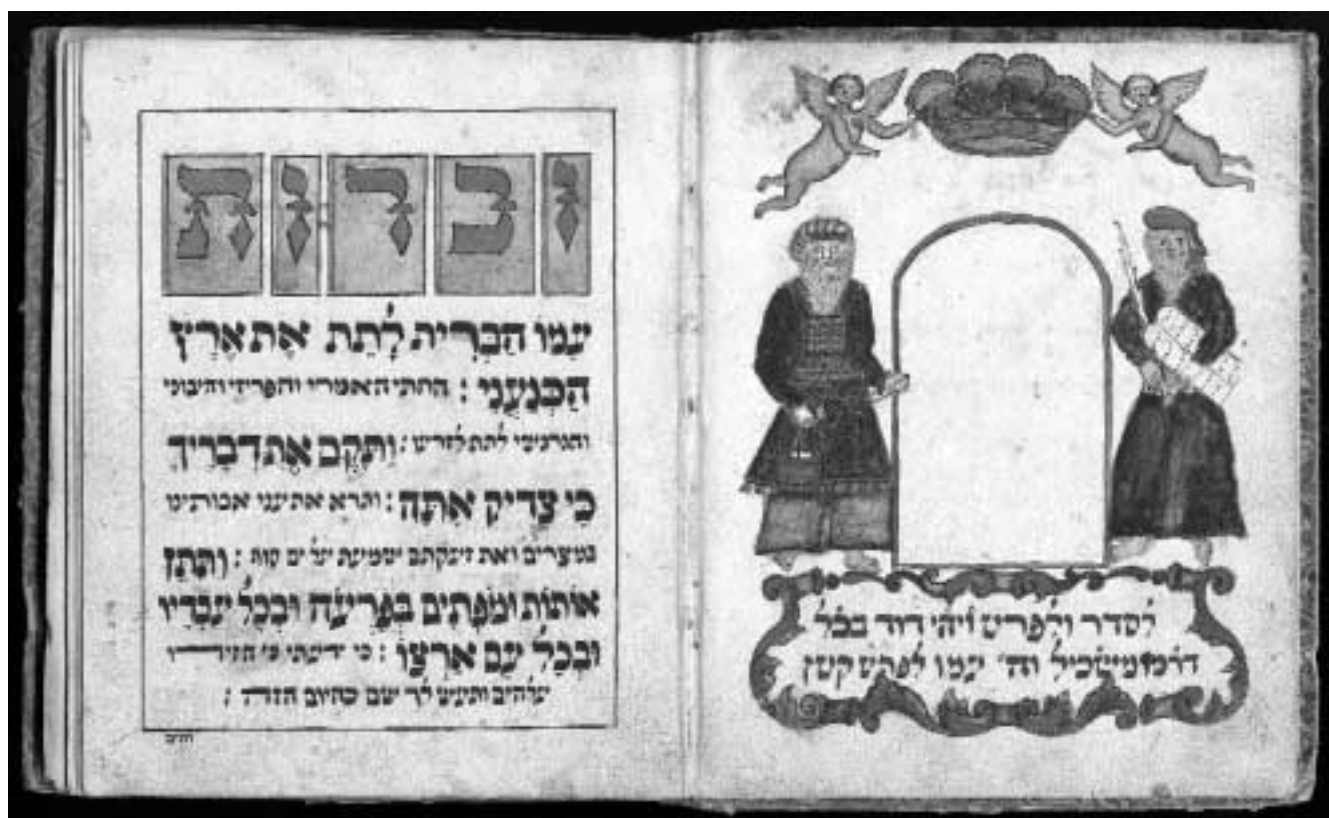 לסדר ולפרט ויהי דוד בכל
דרכו משכיל וה' עמו לפרט קטן
וכרות
עִמוֹ הַבְּרִית לָתֵת אֶת אֶרֶץ
הַכְּנַעֲנִי : החתי האמרי והפריזי והיבוסי
והגרגשי לתת לזרעו : וַתָּקֶם אֶת דְבָרֶיךָ
כִּי צַדִיק אַתָּה : ותרא את עני אבותינו
במצרים ואת זעקתם שמעת על ים סוף : וַתִּתֵּן
אוֹתוֹת וּמֹפְתִים בְּפַרְעֹה וּבְכָל עֲבָדָיו
וּבְכָל עַם אַרְצוֹ : כי ידעת כי הזידו
עליהם ותעש לך שם כהיום הזה :